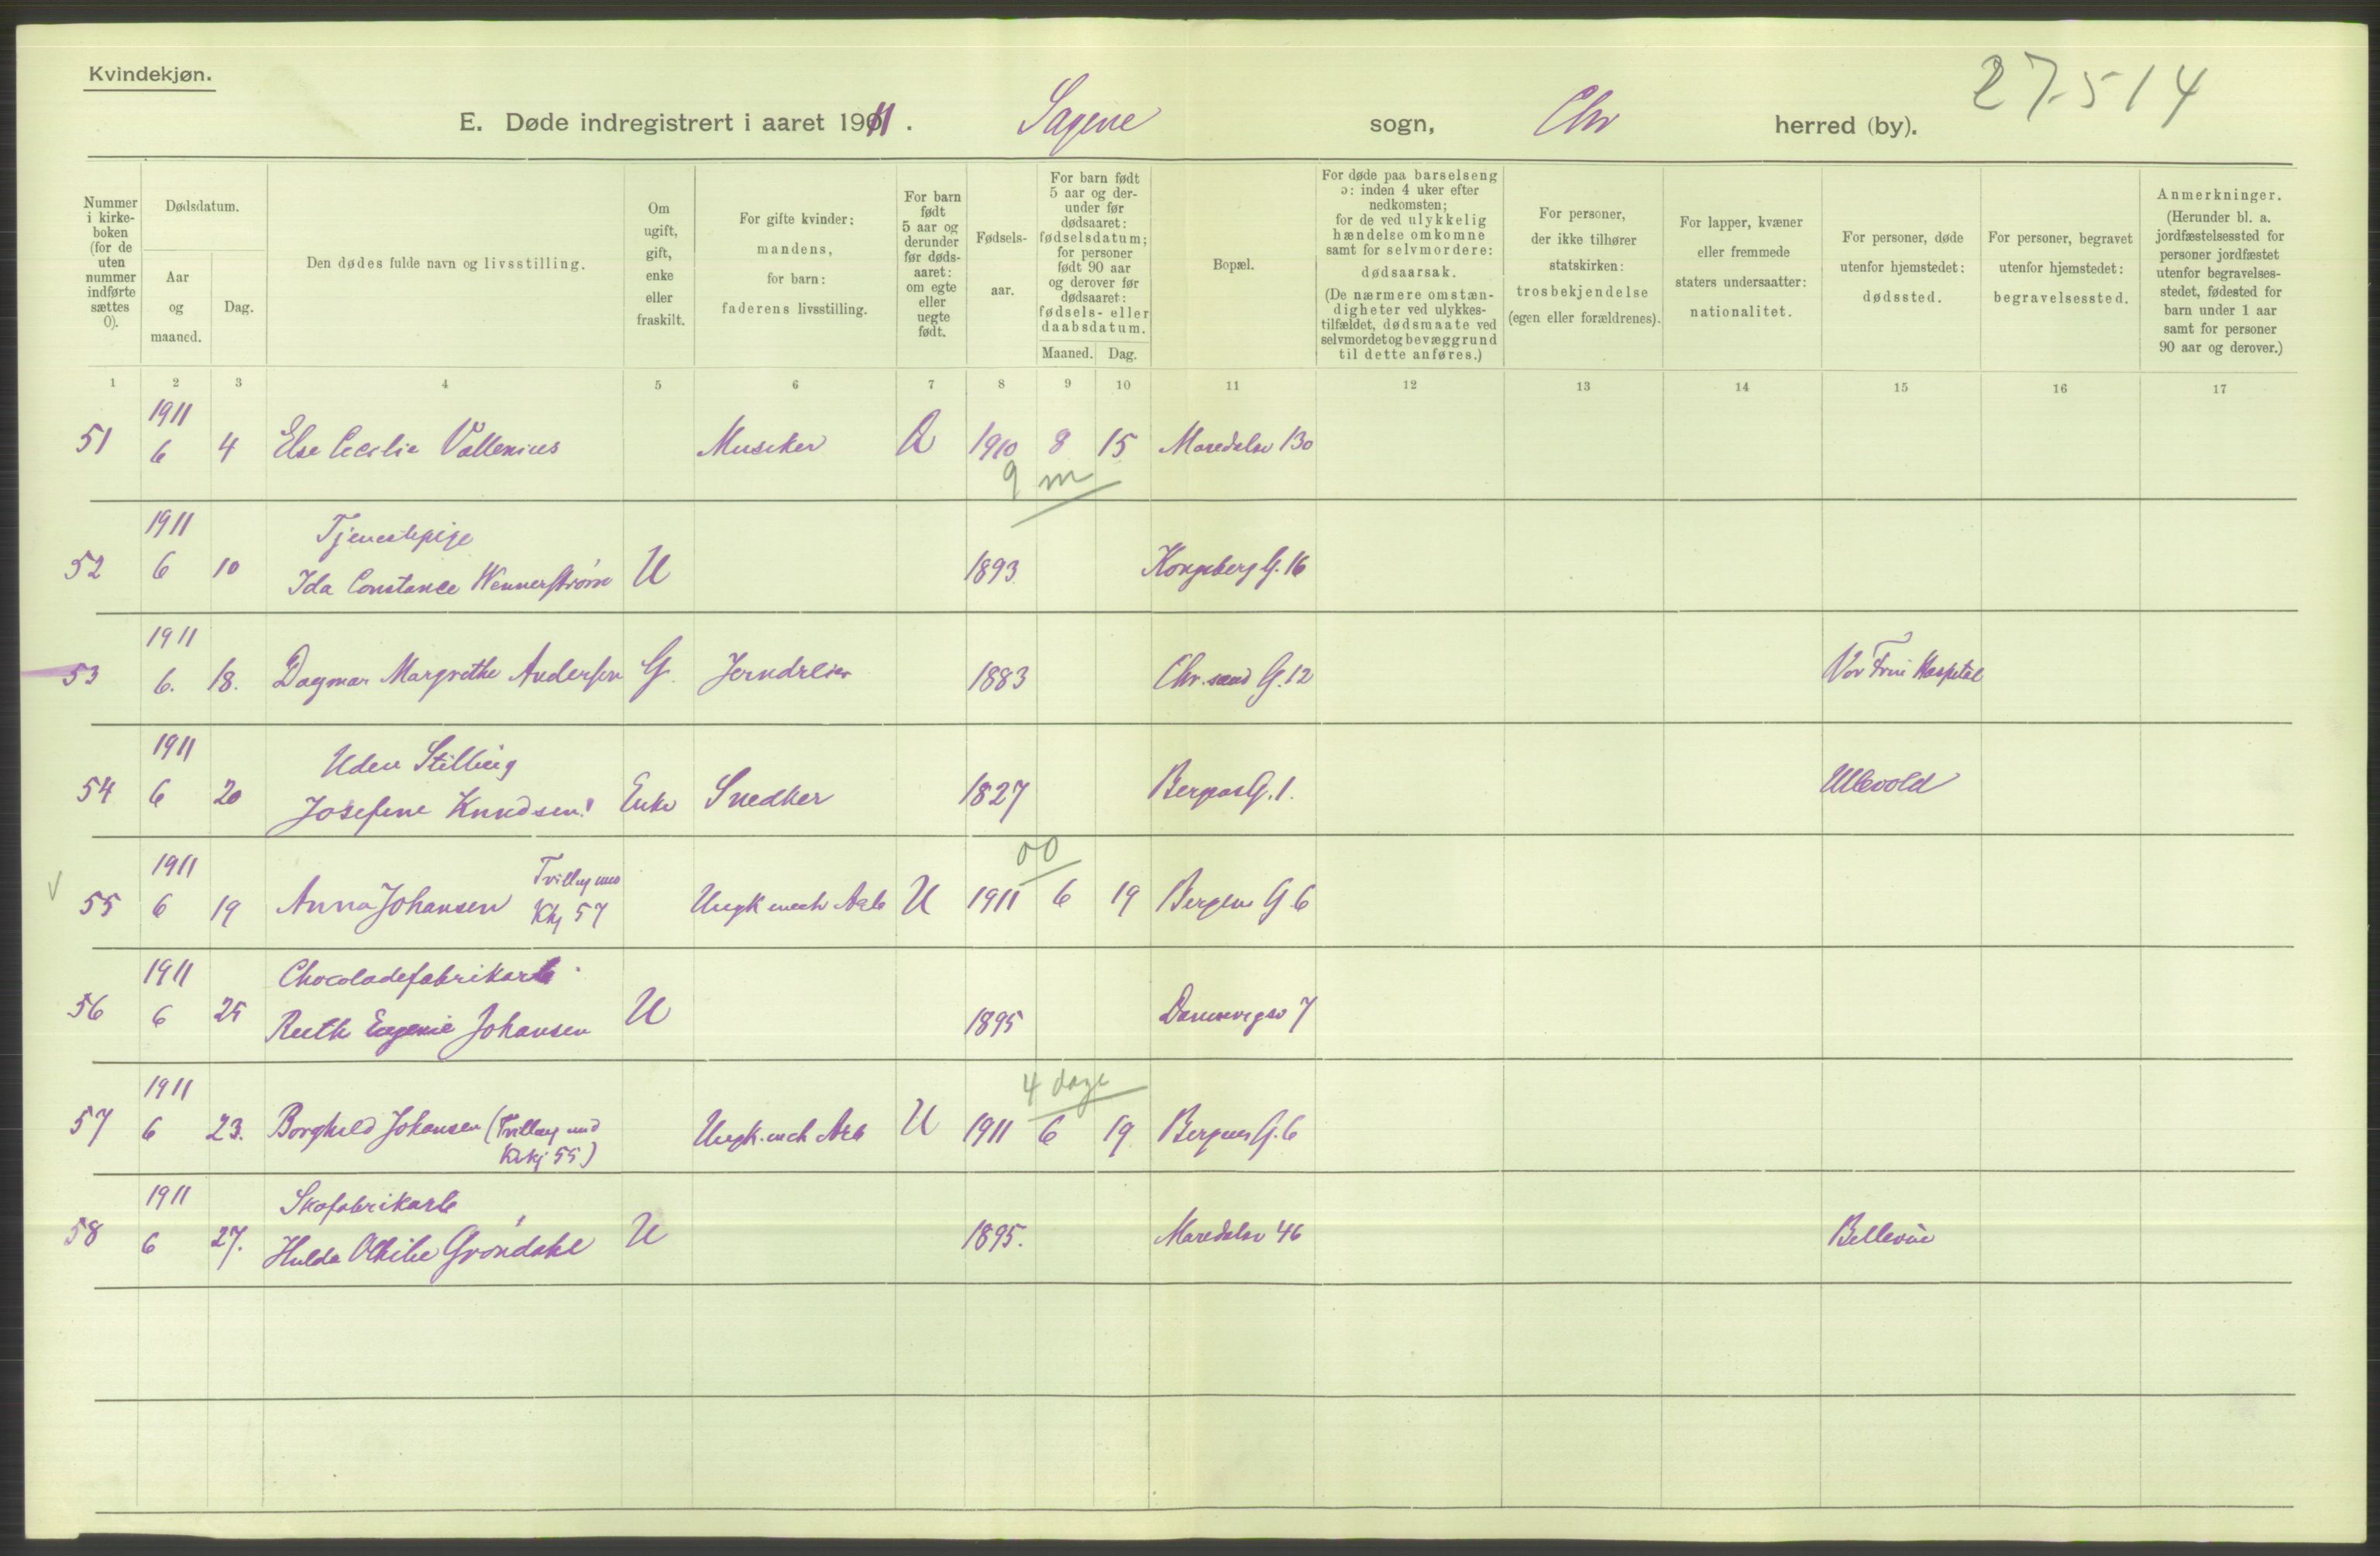 Kvindekjøn.
27514
E. Døde indregistrert i aaret 1911. Sagene sogn, Chr herred (by).
Nummer i kirke-boken (for de uten nummer indførte sættes 0).
Dødsdatum.
Aar og maaned.
Dag.
Den dødes fulde navn og livsstilling.
Om ugift, gift, enke eller fraskilt.
For gifte kvinder: mandens, for barn: faderens livsstilling.
For barn født 5 aar og derunder før døds-aaret: om egte eller uegte født.
Fødsels-aar.
For barn født 5 aar og der-under før dødsaaret: fødselsdatum; for personer født 90 aar og derover før dødsaaret: fødsels- eller daabsdatum.
Maaned. Dag.
Bopæl.
For døde paa barselseng ɔ: inden 4 uker efter nedkomsten; for de ved ulykkelig hændelse omkomne samt for selvmordere: dødsaarsak. (De nærmere omstæn-digheter ved ulykkes-tilfældet, dødsmaate ved selvmordet og bevæggrund til dette anføres.)
For personer, der ikke tilhører statskirken: trosbekjendelse (egen eller forældrenes).
For lapper, kvæner eller fremmede staters undersaatter: nationalitet.
For personer, døde utenfor hjemstedet: dødssted.
For personer, begravet utenfor hjemstedet: begravelsessted.
Anmerkninger. (Herunder bl. a. jordfæstelsessted for personer jordfæstet utenfor begravelses-stedet, fødested for barn under 1 aar samt for personer 90 aar og derover.)
1 2 3 4 5 6 7 8 9 10 11 12 13 14 15 16 17
1911
51 6 4 Else Cecilie Vallenius Musiker Æ 1910 8 15 Maredalsv 130
9 m
1911 Tjenestepige
52 6 10 Ida Constance Wennerstrøm U 1893 Kongsberg G. 16
1911
53 6. 18. Dagmar Margrethe Andersen G. Jerndreier 1883 Chr.sand G. 12 Vor Frue Hospital
1911 Uden Stilling
54 6 20 Josefine Knudsen Enke Snedker 1827 Bergens G. 1. Ullevold
1911 Tvilling med 00
55 6 19 Anna Johansen Kkj 57 Ungk mech Arb U 1911 6 19 Bergens G 6
1911 Chocoladefabrikarb
56 6 25 Ruth Eugenie Johansen U 1895 Dannevigsv 7
1911 4 dage
57 6 23. Borghild Johansen (Tvilling med Ungk. mch Arb U 1911 6 19 Bergens G. 6
Kkj 55)
1911 Skofabrikarb
58 6 27. Hulda Othilie Grøndahl U 1895. Maredalsv 46 Bellevue